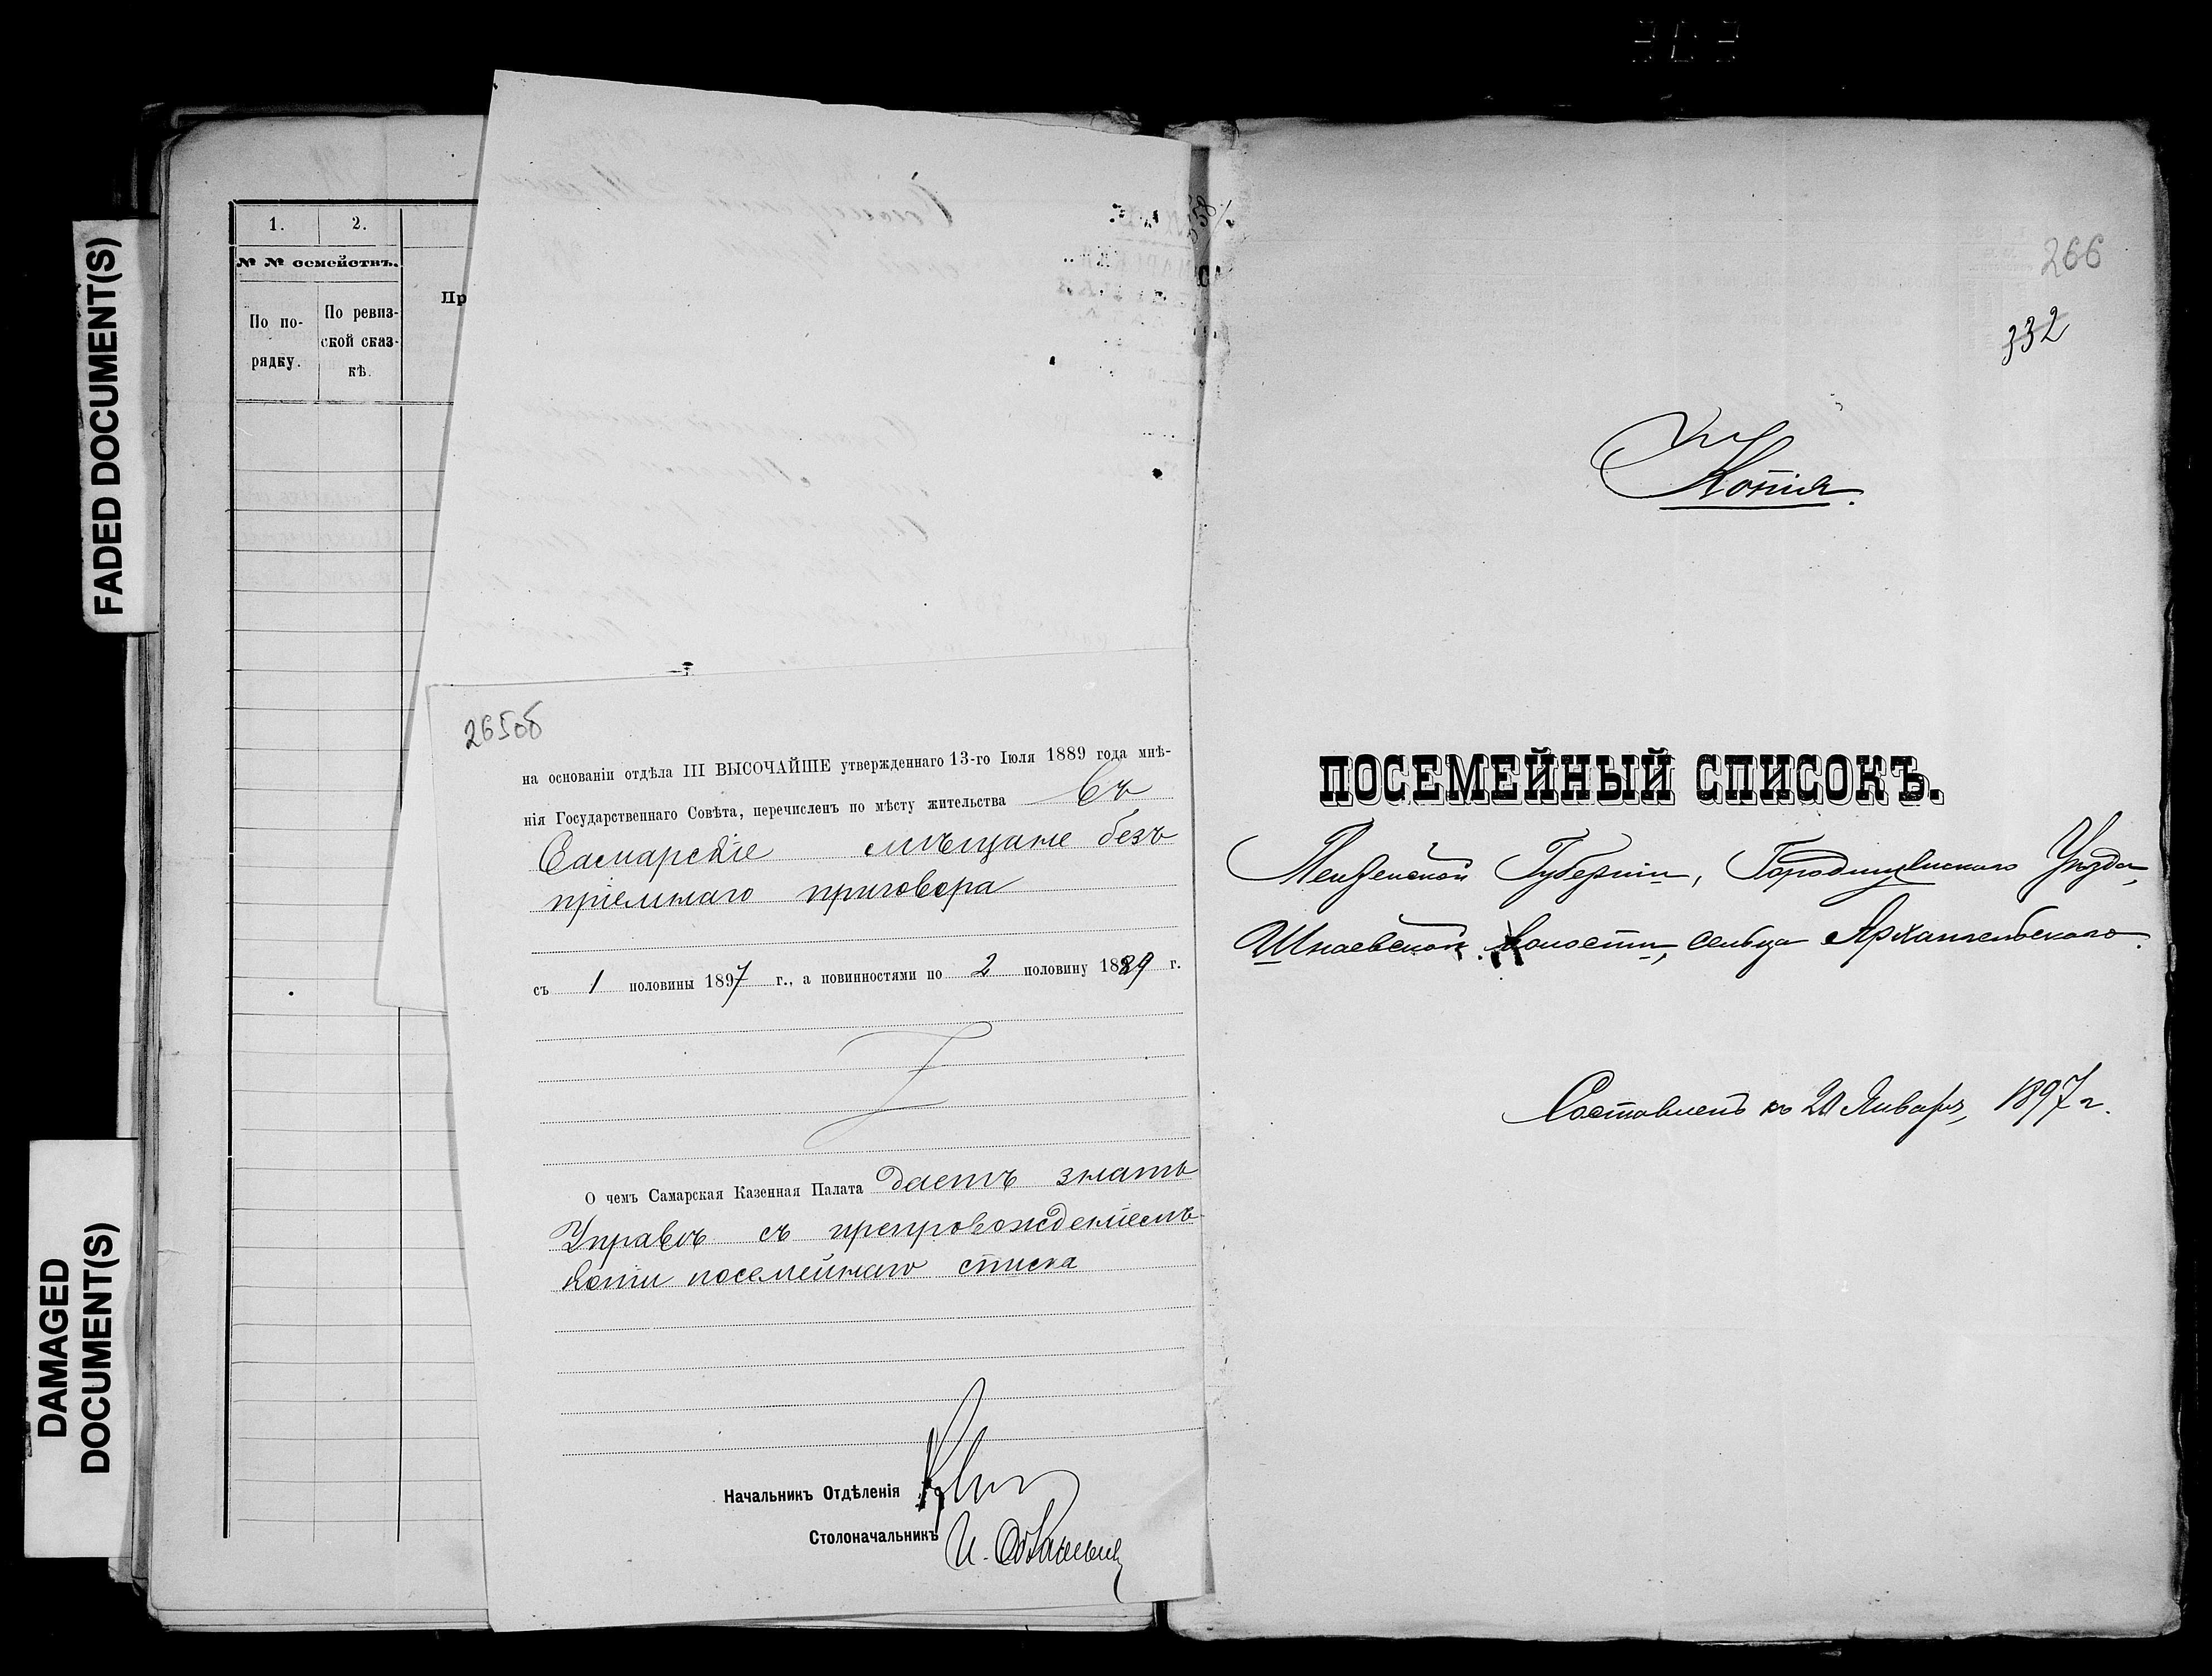 FADED DOCUMENT(S)
DAMAGED
DOCUMENT(S)
1. 2.
№ № семействъ.
По по-
рядку.
По ревиз-
ской сказ-
кѣ.
Пр
265об
на основаніи отдѣла III ВЫСОЧАЙШЕ утвержденнаго 13-го Іюля 1889 года мнѣ-
нія Государственнаго Совѣта, перечисленъ по мѣсту жительства въ
Самарскіе мѣщане безъ
пріемнаго приговора
съ 1 половины 1897 г., а повинностями по 2 половину 1889 г.
О чемъ Самарская Казенная Палата даетъ знать
Управѣ съ препровожденіемъ
копіи посемейнаго списка
Начальникъ Отдѣленія
Столоначальникъ И.
266
332
Копія.
ПОСЕМЕЙНЫЙ СПИСОКЪ.
Пензенской Губерніи, Городищенскаго Уѣзда,
Шнаевской волости, сельца Архангельскаго.
Составленъ къ 20 Января, 1897 г.